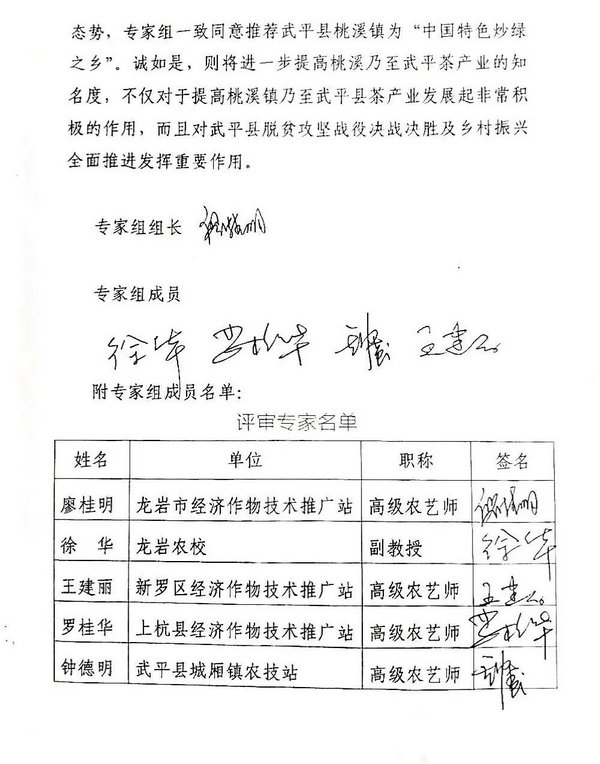 态势，专家组一致同意推荐武平县桃溪镇为“中国特色炒绿
之乡”。诚如是，则将进一步提高桃溪乃至武平茶产业的知
名度，不仅对于提高桃溪镇乃至武平县茶产业发展起非常积
极的作用，而且对武平县脱贫攻坚战役决战决胜及乡村振兴
全面推进发挥重要作用。
专家组组长 廖桂明
专家组成员
徐华 罗桂华 钟德明 王建丽
附专家组成员名单：
评审专家名单
姓名 单位 职称 签名
廖桂明 龙岩市经济作物技术推广站 高级农艺师 廖桂明
徐 华 龙岩农校 副教授 徐华
王建丽 新罗区经济作物技术推广站 高级农艺师 王建丽
罗桂华 上杭县经济作物技术推广站 高级农艺师 罗桂华
钟德明 武平县城厢镇农技站 高级农艺师 钟德明